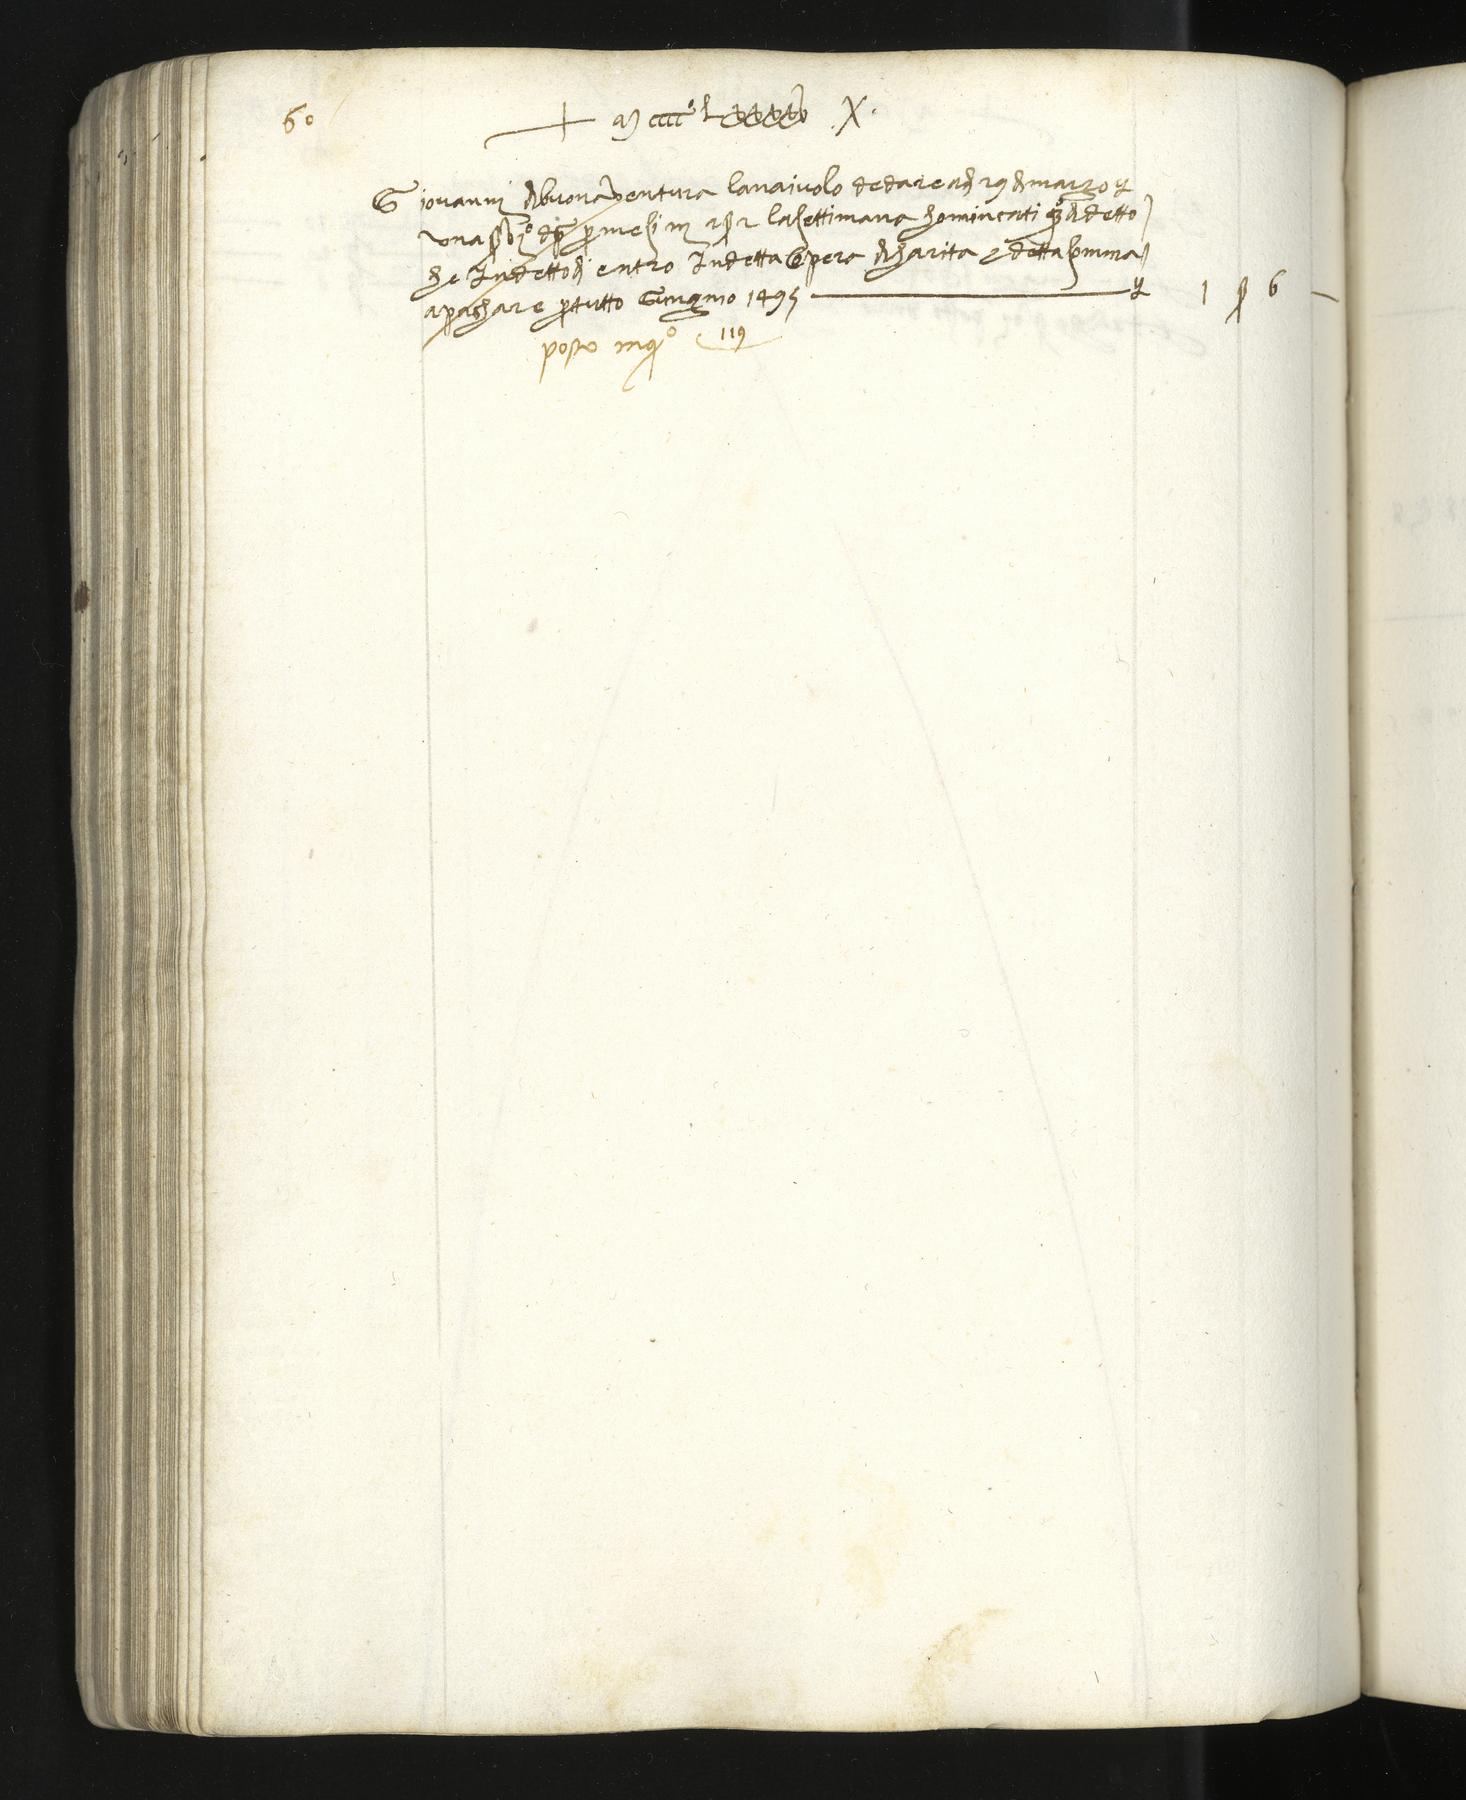 60
+ Mcccc°Lxxxxv X
Giovanni di buonaventura lanaiuolo de dare adi 29 di marzo
una per mesi iii a s 2 la settimana chominciati detto
che in detto di entro in detta opera di charita e detta somma
a paghare per tutto Giugnio 1495 1 s 6 —
posto in q° 119